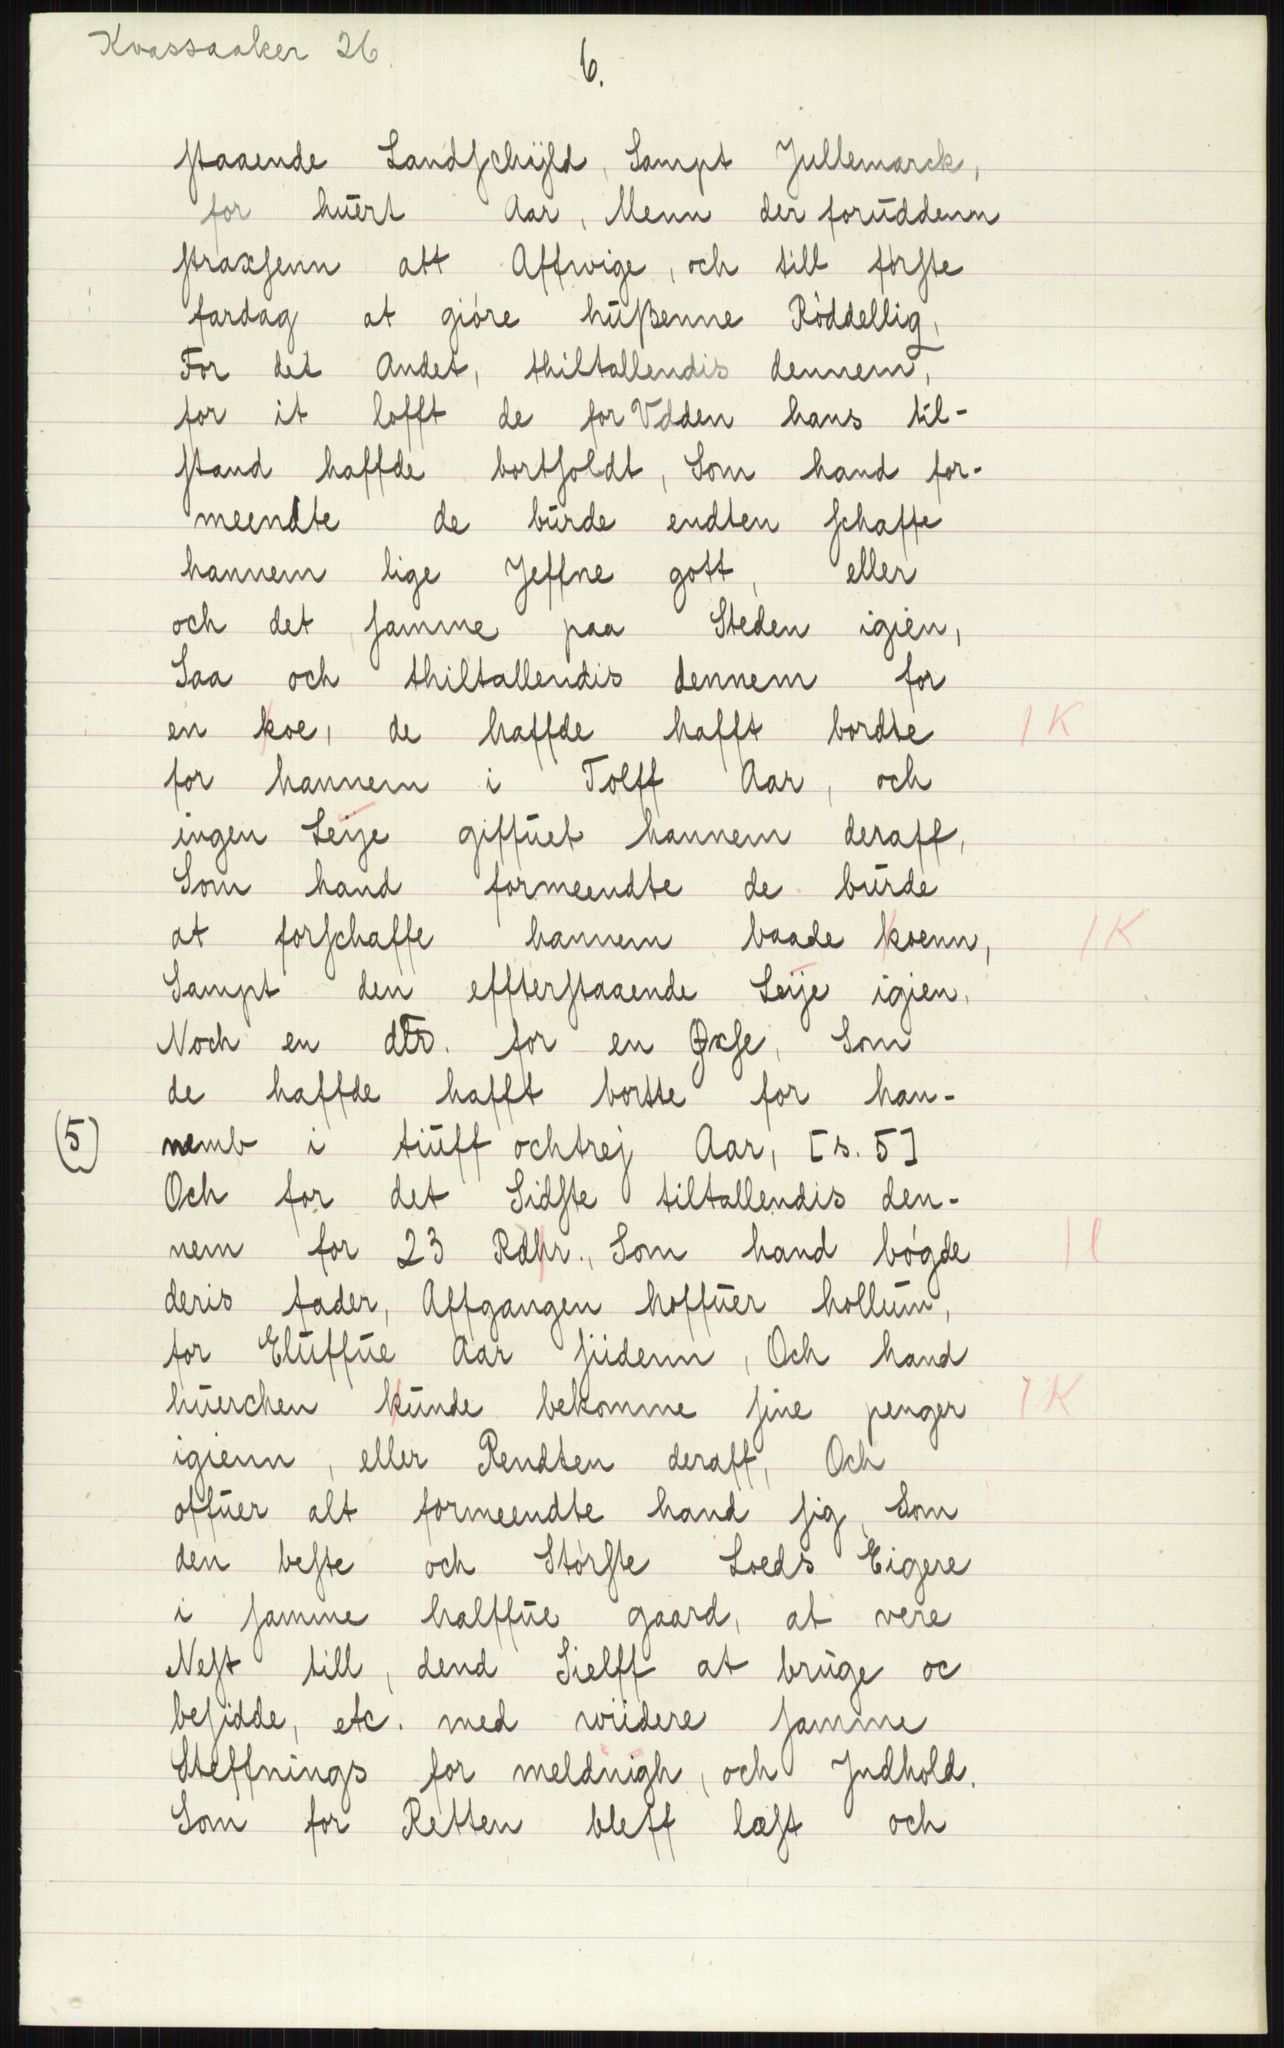 Kvassaaker 26.
6.
staaende Landschÿld, Sampt Jullemarck,
for huert Aar, Menn der foruddenn
straxsenn att Affwige, och till førſte
fardag at giöre hußenne Röddellig,
For det Andet, thiltallendis dennem,
for it lofft de for Vdden hans til-
ſtand haffde bortſoldt, Som hand for-
meendte de burde endten ſchaffe
hannem lige Jeffne gott, eller
och det ſamme paa Steden igien,
Saa och thiltallendis dennem for
en koe, de haffde hafft bordte 1 K
for hannem i Tolff Aar, och
ingen Leije giffuet hannem deraff,
Som hand formeendte de burde
at forſchaffe hannem baade koenn, 1 K
Sampt den effterſtaaende Leije igien,
Noch en dlr. for en Oxſe, Som
de haffde hafft bortte for han-
(5) nemb i tiuff ochtrej Aar, [s. 5]
Och for det Sidſte tiltallendis den-
nem for 23 Rdlr., Som hand bögde 1 l
deris fader, Affgangen hoffuer hollum,
for Eluffue Aar ſiidenn, Och hand
huerchen kunde bekomme ſine penger 1 K
igienn, eller Rendten deraff, Och
offuer alt formeendte hand ſig, Som
den beſte och Störſte Loeds Eigere
i ſamme halffue gaard, at vere
Neſt till, dend Sielff at bruge oc
beſidde, etc. med wiidere ſamme
Steffnings for meldnigh, och Jndhold.
Som for Retten bleff læſt och